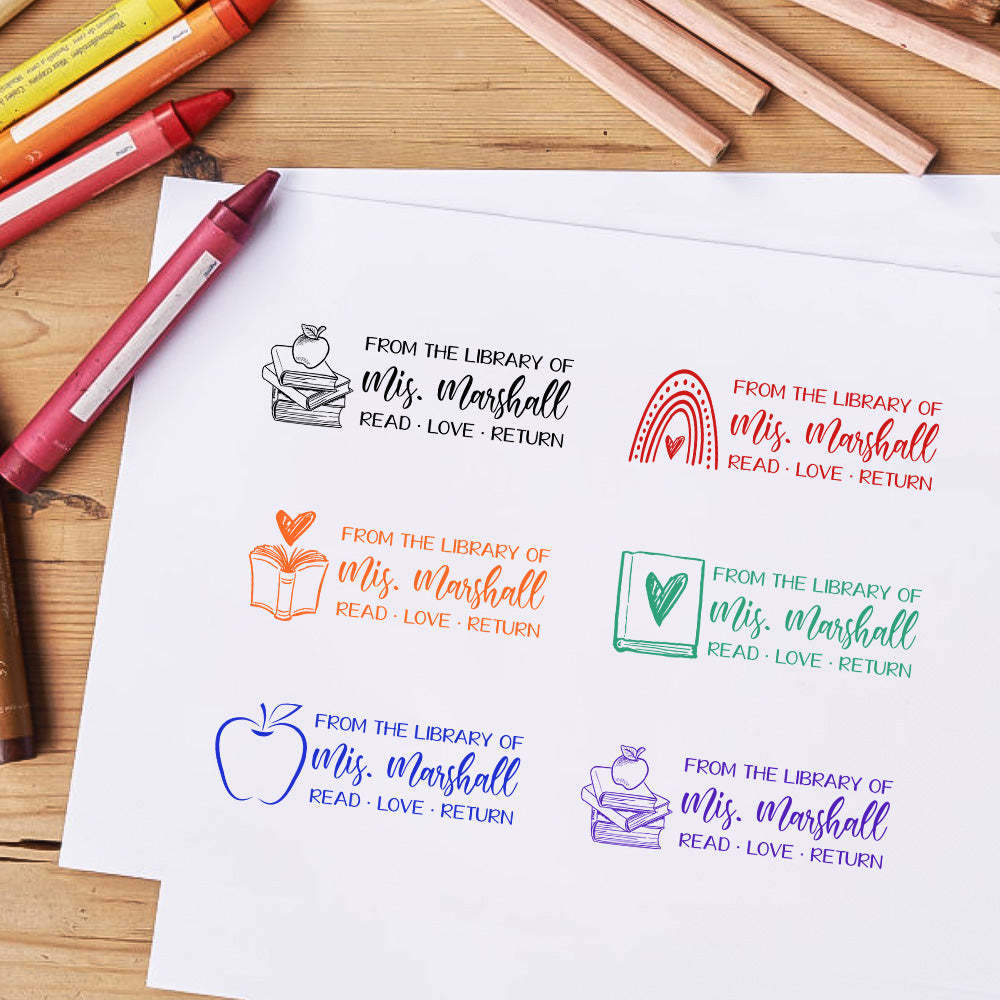 FROM THE LIBRARY OF
Mis. Marshall
READ · LOVE · RETURN
FROM THE LIBRARY OF
Mis. Marshall
READ · LOVE · RETURN
FROM THE LIBRARY OF
Mis. Marshall
READ · LOVE · RETURN
FROM THE LIBRARY OF
Mis. Marshall
READ · LOVE · RETURN
FROM THE LIBRARY OF
Mis. Marshall
READ · LOVE · RETURN
FROM THE LIBRARY OF
Mis. Marshall
READ · LOVE · RETURN